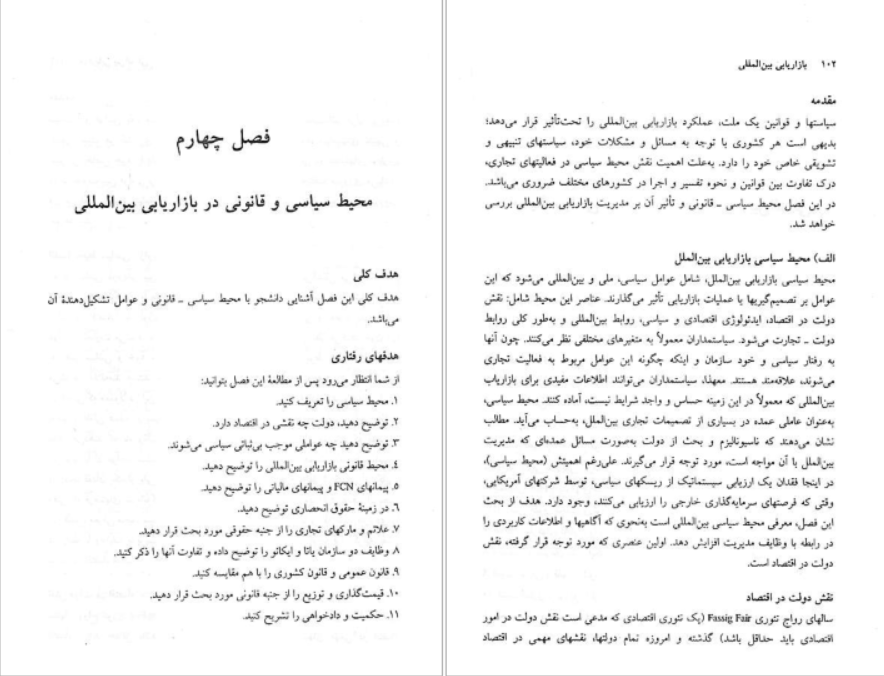 فصل چهارم
محیط سیاسی و قانونی در بازاریابی بین‌المللی
هدف کلی
هدف کلی این فصل آشنایی دانشجو با محیط سیاسی ـ قانونی و عوامل تشکیل‌دهندهٔ آن
می‌باشد.
هدفهای رفتاری
از شما انتظار می‌رود پس از مطالعهٔ این فصل بتوانید:
۱. محیط سیاسی را تعریف کنید.
۲. توضیح دهید، دولت چه نقشی در اقتصاد دارد.
۳. توضیح دهید چه عواملی موجب بی‌ثباتی سیاسی می‌شوند.
۴. محیط قانونی بازاریابی بین‌المللی را توضیح دهید.
۵. پیمانهای FCN و پیمانهای مالیاتی را توضیح دهید.
۶. در زمینهٔ حقوق انحصاری توضیح دهید.
۷. علائم و مارکهای تجاری را از جنبه حقوقی مورد بحث قرار دهید.
۸. وظایف دو سازمان یاتا و ایکائو را توضیح داده و تفاوت آنها را ذکر کنید.
۹. قانون عمومی و قانون کشوری را با هم مقایسه کنید.
۱۰. قیمت‌گذاری و توزیع را از جنبه قانونی مورد بحث قرار دهید.
۱۱. حکمیت و دادخواهی را تشریح کنید.
۱۰۲ بازاریابی بین‌المللی
مقدمه
سیاستها و قوانین یک ملت، عملکرد بازاریابی بین‌المللی را تحت‌تأثیر قرار می‌دهد؛
بدیهی است هر کشوری با توجه به مسائل و مشکلات خود، سیاستهای تنبیهی و
تشویقی خاص خود را دارد. به‌علت اهمیت نقش محیط سیاسی در فعالیتهای تجاری،
درک تفاوت بین قوانین و نحوه تفسیر و اجرا در کشورهای مختلف ضروری می‌باشد.
در این فصل محیط سیاسی ـ قانونی و تأثیر آن بر مدیریت بازاریابی بین‌المللی بررسی
خواهد شد.
الف) محیط سیاسی بازاریابی بین‌الملل
محیط سیاسی بازاریابی بین‌الملل، شامل عوامل سیاسی، ملی و بین‌المللی می‌شود که این
عوامل بر تصمیم‌گیریها یا عملیات بازاریابی تأثیر می‌گذارند. عناصر این محیط شامل: نقش
دولت در اقتصاد، ایدئولوژی اقتصادی و سیاسی، روابط بین‌المللی و به‌طور کلی روابط
دولت ـ تجارت می‌شود. سیاستمداران معمولاً به متغیرهای مختلفی نظر می‌کنند. چون آنها
به رفتار سیاسی و خود سازمان و اینکه چگونه این عوامل مربوط به فعالیت تجاری
می‌شوند، علاقه‌مند هستند. معهذا، سیاستمداران می‌توانند اطلاعات مفیدی برای بازاریاب
بین‌المللی که معمولاً در این زمینه حساس و واجد شرایط نیست، آماده کنند. محیط سیاسی،
به‌عنوان عاملی عمده در بسیاری از تصمیمات تجاری بین‌الملل، به‌حساب می‌آید. مطالب
نشان می‌دهند که ناسیونالیزم و بحث از دولت به‌صورت مسائل عمده‌ای که مدیریت
بین‌الملل با آن مواجه است، مورد توجه قرار می‌گیرند. علی‌رغم اهمیتش (محیط سیاسی)،
در اینجا فقدان یک ارزیابی سیستماتیک از ریسکهای سیاسی، توسط شرکتهای آمریکایی،
وقتی که فرصتهای سرمایه‌گذاری خارجی را ارزیابی می‌کنند، وجود دارد. هدف از بحث
این فصل، معرفی محیط سیاسی بین‌المللی است به‌نحوی که آگاهیها و اطلاعات کاربردی را
در رابطه با وظایف مدیریت افزایش دهد. اولین عنصری که مورد توجه قرار گرفته، نقش
دولت در اقتصاد است.
نقش دولت در اقتصاد
سالهای رواج تئوری Fassig Fair (یک تئوری اقتصادی که مدعی است نقش دولت در امور
اقتصادی باید حداقل باشد) گذشته و امروزه تمام دولتها، نقشهای مهمی در اقتصاد